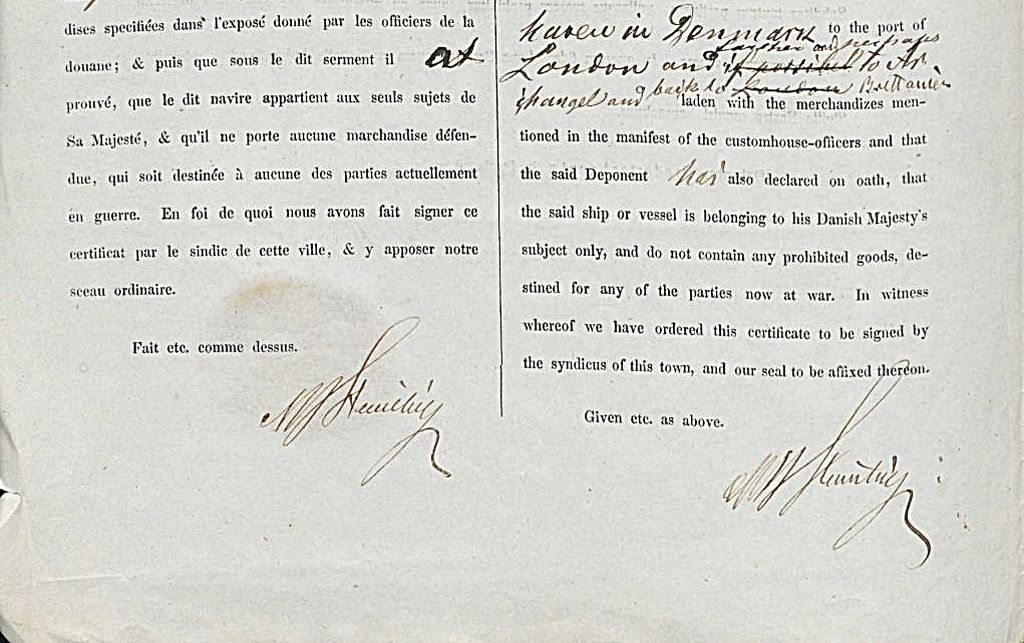 dises specifiées dans l'exposé donné par les officiers de la
douane; & puis que sous le dit serment il at
prouvé, que le dit navire appartient aux seuls sujets de
Sa Majesté, & qu'il ne porte aucune marchandise défen-
due, qui soit destinée à aucune des parties actuellement
en guerre. En foi de quoi nous avons fait signer ce
certificat par le sindic de cette ville, & y apposer notre
sceau ordinaire.
Fait etc. comme dessus.
haven in Denmark to the port of
farther and perhaps
London and if possibel to Ar
changel and back to London Brittanien
laden with the merchandizes men-
tioned in the manifest of the customhouse-officers and that
the said Deponent has also declared on oath, that
the said ship or vessel is belonging to his Danish Majesty's
subject only, and do not contain any prohibited goods, de-
stined for any of the parties now at war. In witness
whereof we have ordered this certificate to be signed by
the syndicus of this town, and our seal to be affixed thereon.
Given etc. as above.